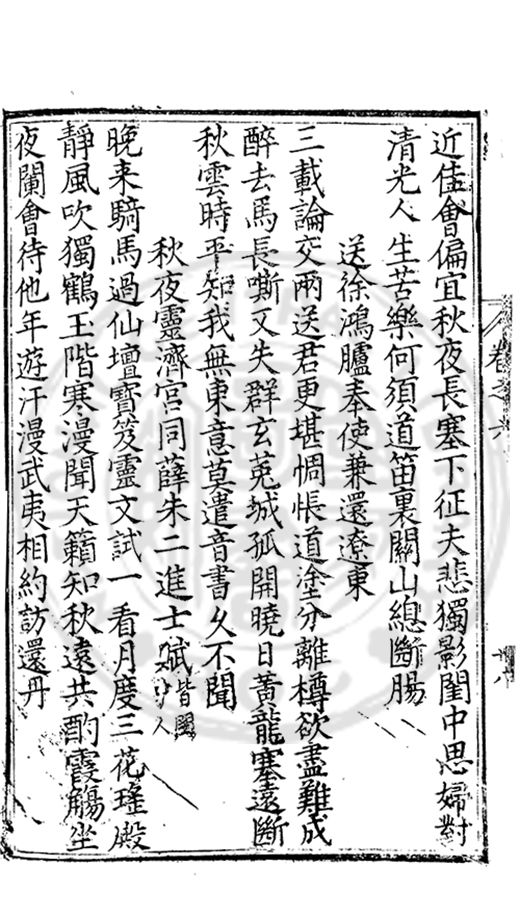 近佳會偏宜秋夜長塞下征夫悲獨影閨中思婦對
清光人生苦樂何須道笛裏關山總斷腸
送徐鴻臚奉使兼還遼東
三載論交兩送君更堪惆悵道塗分離樽欲盡難成
醉去馬長嘶又失群玄菟城孤開曉日黃龍塞遠斷
秋雲時平知我無東意莫遣音書久不聞
秋夜靈濟宮同薛朱二進士賦皆閩中人
晚来騎馬過仙壇寶笈靈文試一看月度三花瑤殿
靜風吹獨鶴玉階寒漫聞天籟知秋遠共酌霞觴坐
夜闌會待他年遊汗漫武夷相約訪還丹
卷之六